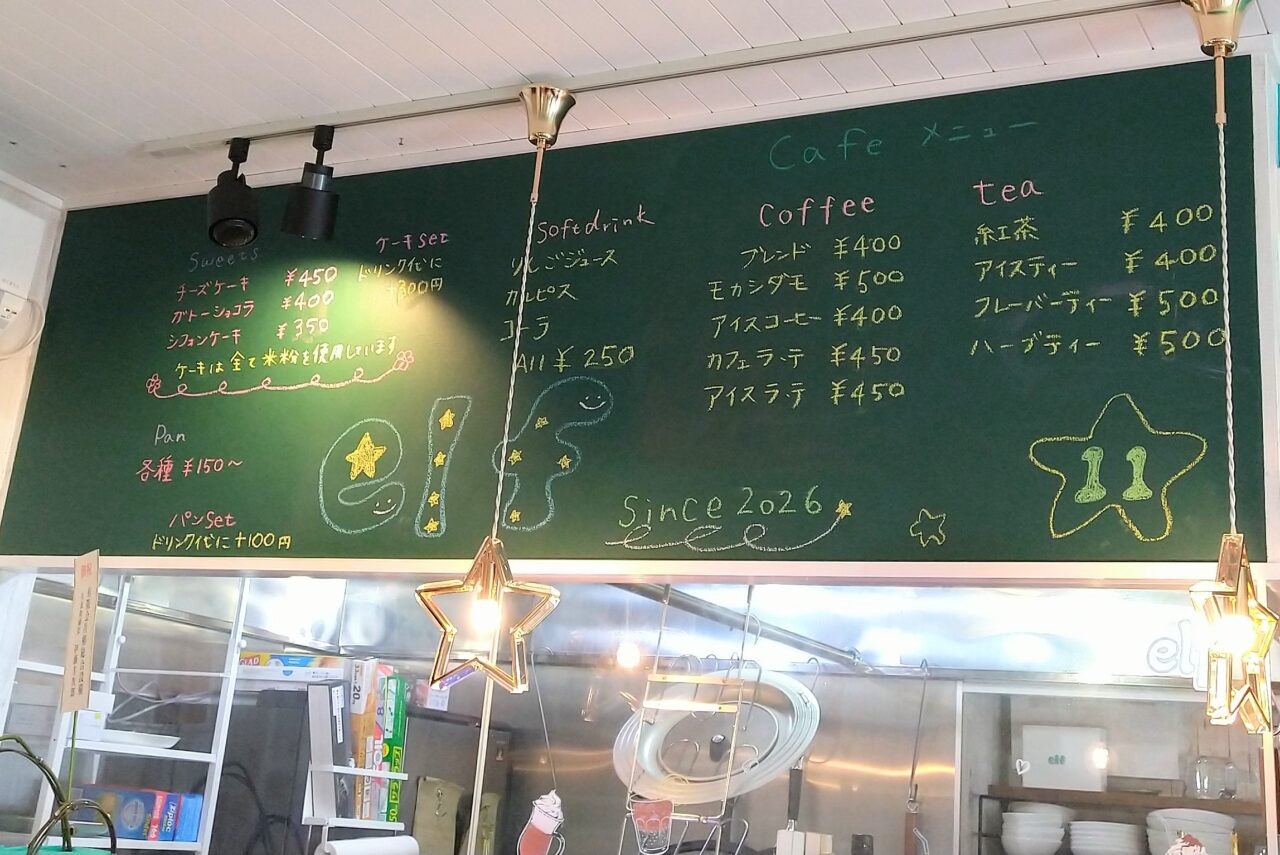 Cafe メニュー
Sweets
チーズケーキ ¥450
ガトーショコラ ¥400
シフォンケーキ ¥350
ケーキは全て米粉を使用しています
ケーキset
ドリンク代に
+300円
Pan
各種 ¥150〜
パンset
ドリンク代に+100円
Softdrink
りんごジュース
カルピス
コーラ
All ¥250
Coffee
ブレンド ¥400
モカシダモ ¥500
アイスコーヒー ¥400
カフェラテ ¥450
アイスラテ ¥450
tea
紅茶 ¥400
アイスティー ¥400
フレーバーティー ¥500
ハーブティー ¥500
elf
since 2026
11
GLAD
Ziploc
elf